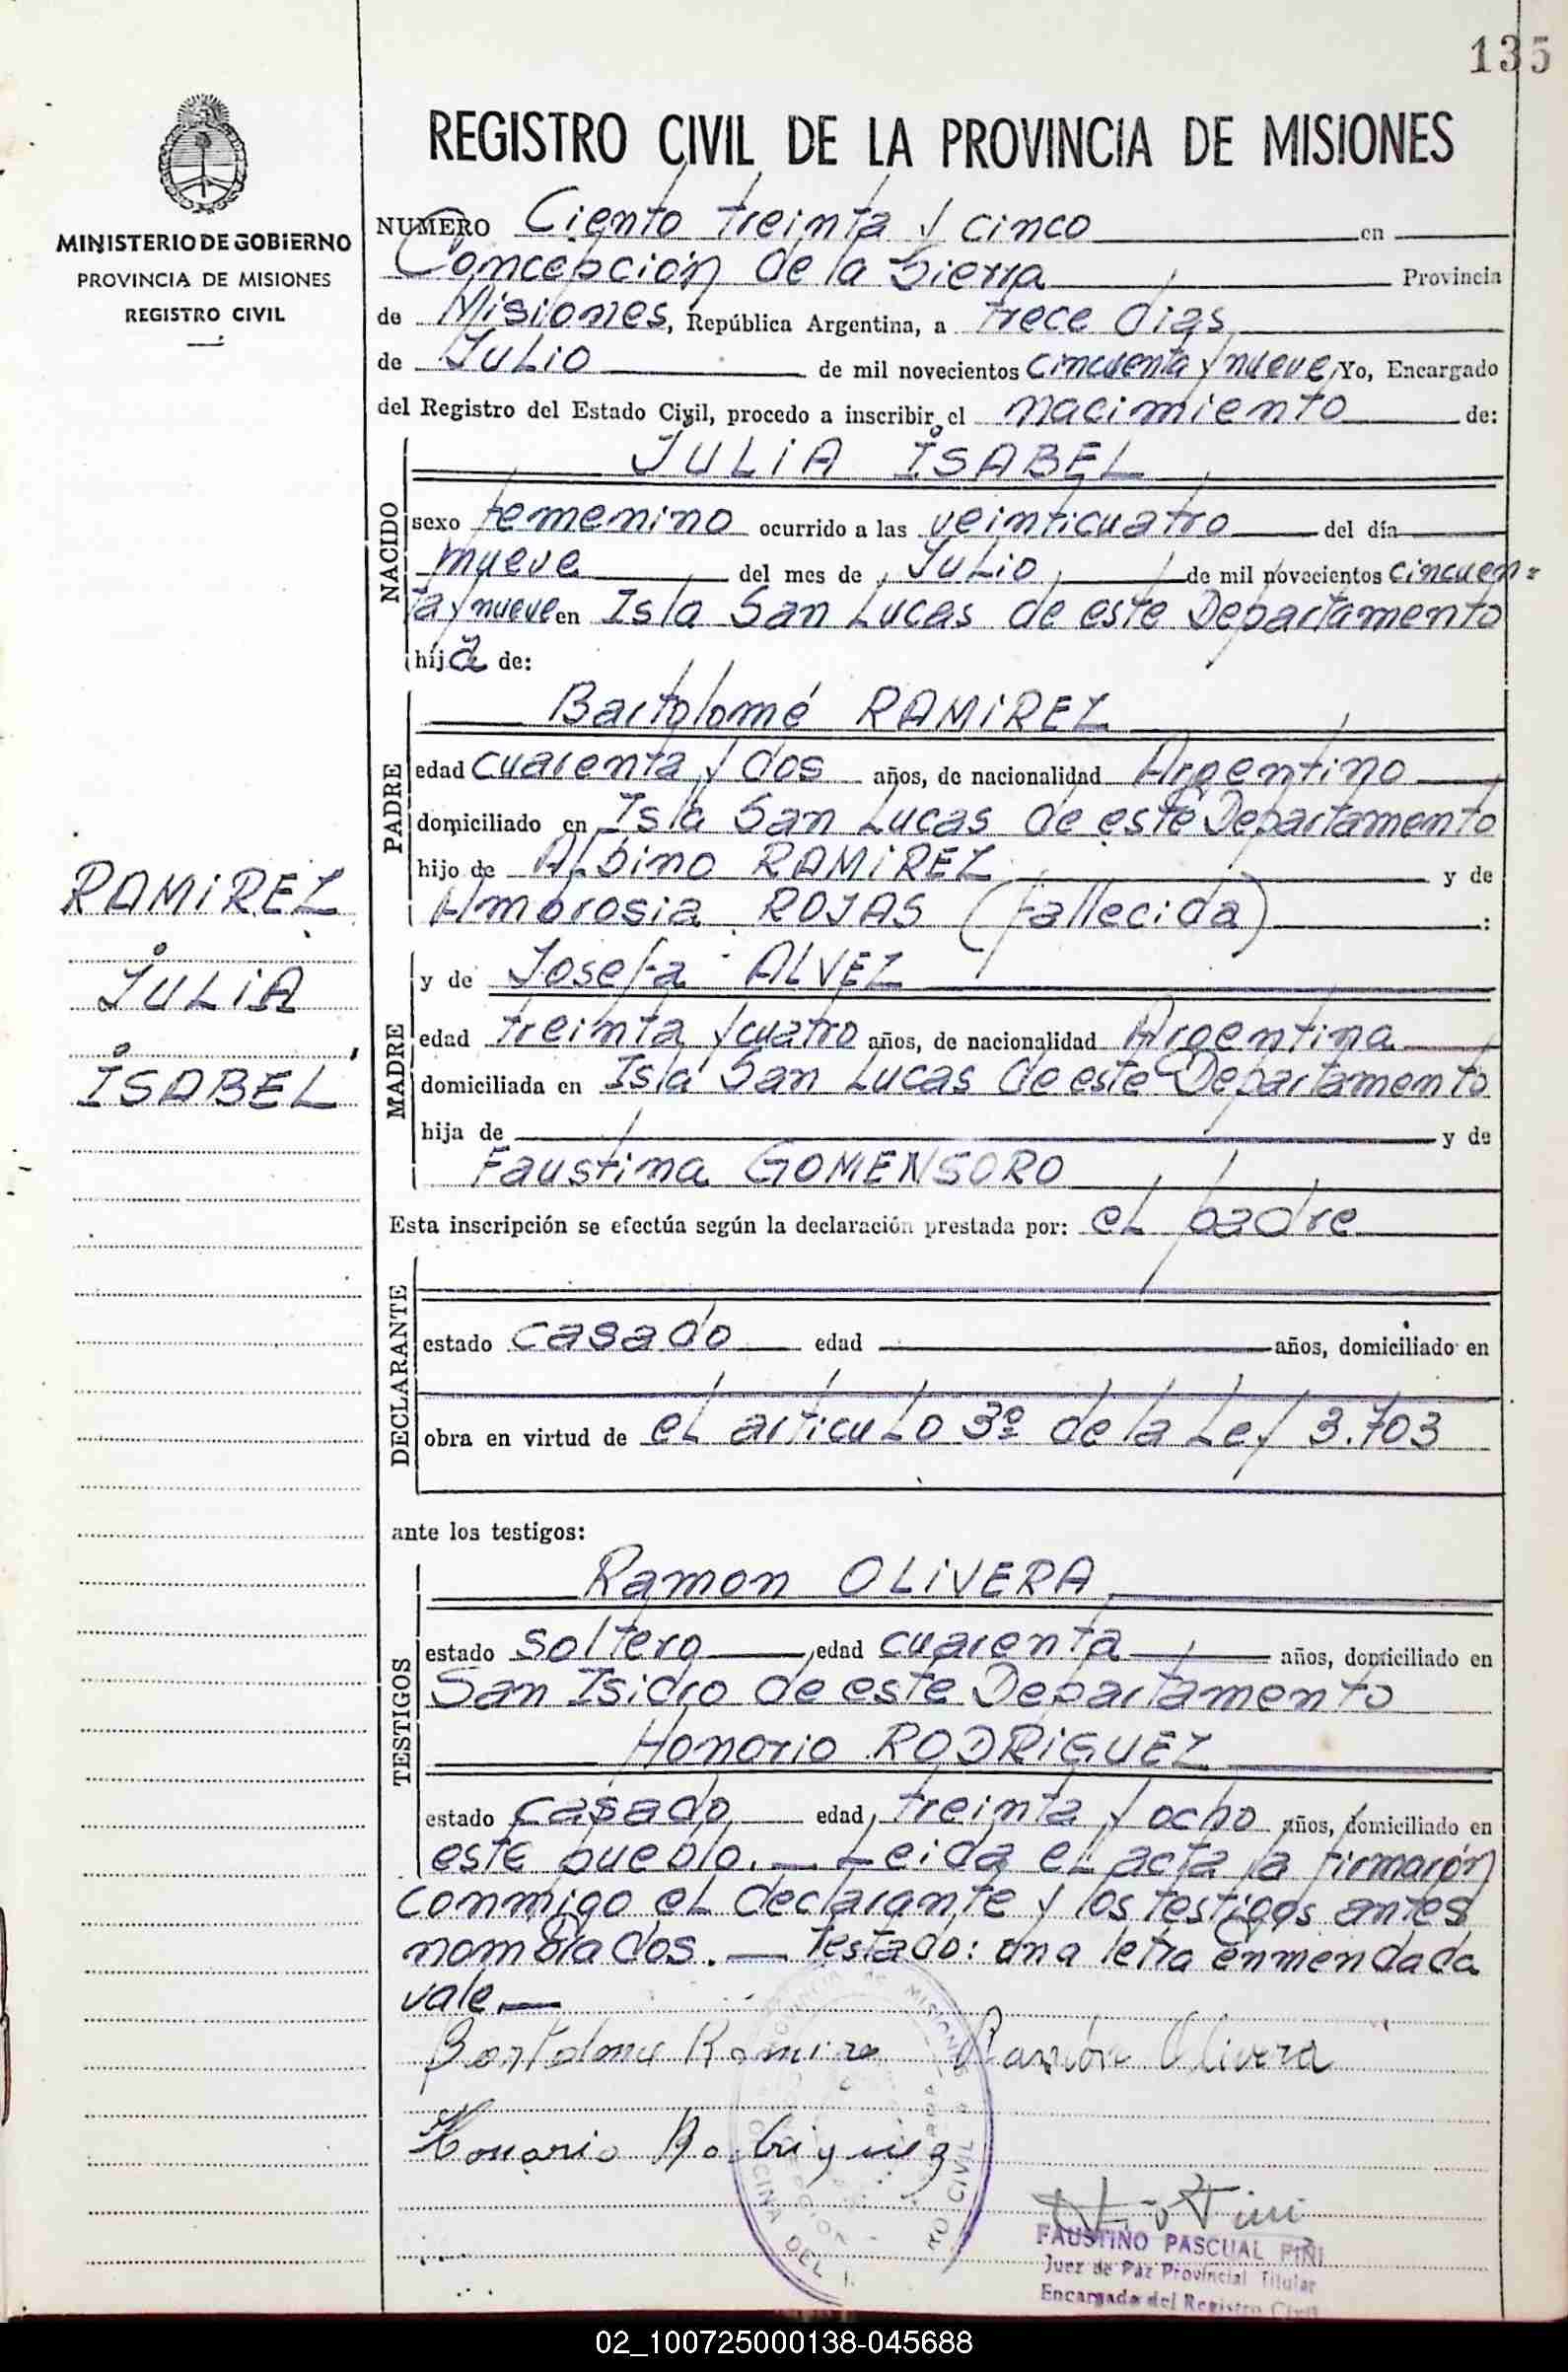 135
REGISTRO CIVIL DE LA PROVINCIA DE MISIONES
MINISTERIO DE GOBIERNO
PROVINCIA DE MISIONES
REGISTRO CIVIL
NUMERO Ciento treinta y cinco en
Concepción de la Sierra Provincia
de Misiones, República Argentina, a trece días
de Julio de mil novecientos cincuenta y nueve Yo, Encargado
del Registro del Estado Civil, procedo a inscribir el nacimiento de:
NACIDO
JULIA ISABEL
sexo femenino ocurrido a las veinticuatro del día
nueve del mes de Julio de mil novecientos cincuen=
ta y nueve en Isla San Lucas de este Departamento
hija de:
PADRE
Bartolomé RAMIREZ
edad cuarenta y dos años, de nacionalidad Argentino
domiciliado en Isla San Lucas de este Departamento
hijo de Albino RAMIREZ y de
Ambrosia ROJAS (fallecida) :
RAMIREZ
JULIA
ISABEL
MADRE
y de Josefa ALVEZ
edad treinta y cuatro años, de nacionalidad Argentina
domiciliada en Isla San Lucas de este Departamento
hija de y de
Faustina GOMENSORO
Esta inscripción se efectúa según la declaración prestada por: el padre
DECLARANTE
estado casado edad años, domiciliado en
obra en virtud de el articulo 3º de la Ley 3.703
ante los testigos:
TESTIGOS
Ramon OLIVERA
estado soltero edad cuarenta años, domiciliado en
San Isidro de este Departamento
Honorio RODRIGUEZ
estado casado edad treinta y ocho años, domiciliado en
este pueblo. — Leida el acta la firmarón
conmigo el declarante y los testigos antes
nombrados. — Testado: una letra enmendada
vale —
Bartolome Ramirez Ramón Olivera
Honorio Rodriguez
FAUSTINO PASCUAL PINI
Juez de Paz Provincial Titular
Encargado del Registro Civil
02_100725000138-045688